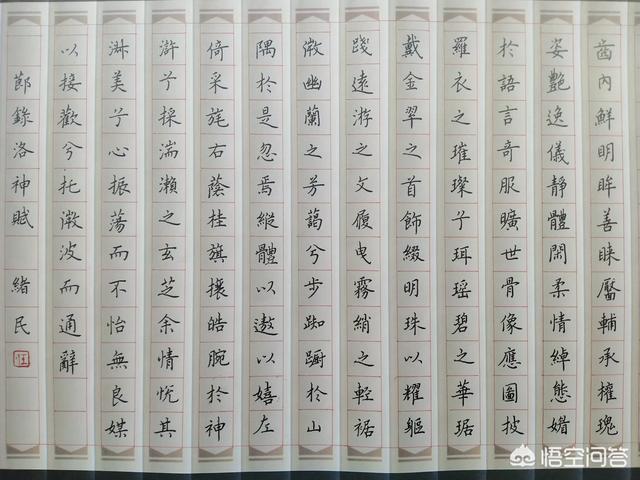 齒內鮮明眸善睞靨輔承權瑰
姿艷逸儀靜體閑柔情綽態媚
於語言奇服曠世骨像應圖披
羅衣之璀璨兮珥瑤碧之華琚
戴金翠之首飾綴明珠以耀軀
踐遠游之文履曳霧綃之輕裾
微幽蘭之芳藹兮步踟躕於山
隅於是忽焉縱體以遨以嬉左
倚采旄右蔭桂旗攘皓腕於神
滸兮採湍瀨之玄芝余情悅其
淑美兮心振蕩而不怡無良媒
以接歡兮托微波而通辭
節錄洛神賦 緒民
悟空问答